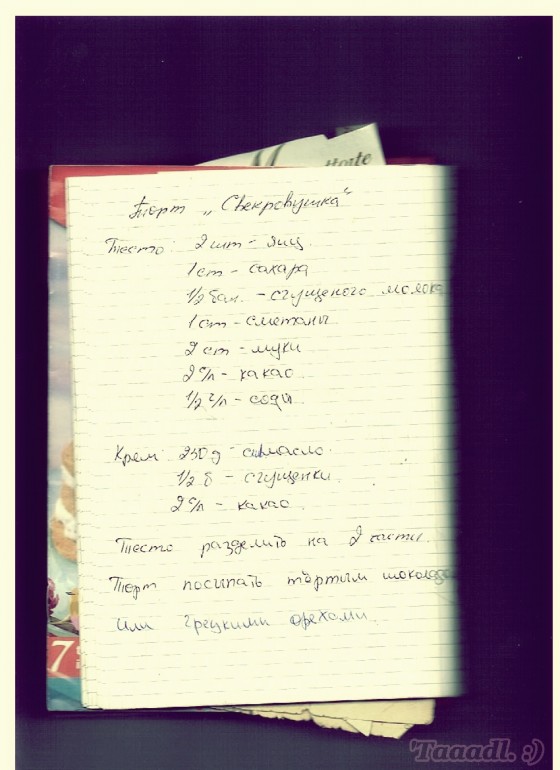 Horte
Торт „Свекровушка"
Тесто: 2 шт - яиц
1 ст - сахара
1/2 бан. - сгущеного молока
1 ст - сметаны
2 ст - муки
2 с/л - какао
1/2 ч/л - соды
Крем: 250 д - масло.
1/2 б - сгущенки.
2 с/л - какао.
Тесто разделить на 2 части.
Торт посыпать тёртым
или грецкими орехами.
7
Taaadl. :)